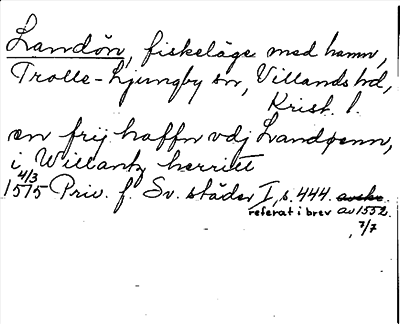 Landön, fiskeläge med hamn,
Trolle-Ljungby sn, Villands hd,
Krist. l.
en frij haffn vdj Landøenn,
i Willantz herritt
4/3
1575 Priv. f. Sv. städer I, s. 444. avskr.
referat i brev av 1552
7/7